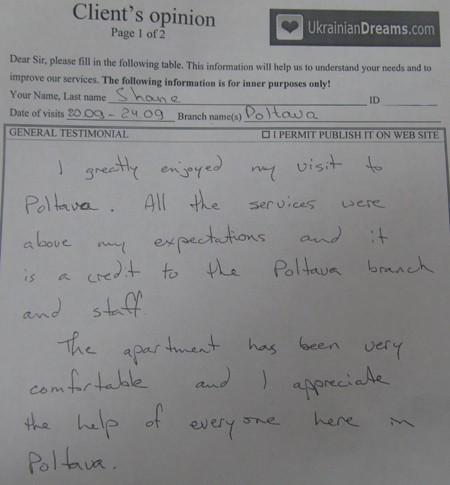 Client's opinion
Page 1 of 2
UkrainianDreams.com
Dear Sir, please fill in the following table. This information will help us to understand your needs and to
improve our services. The following information is for inner purposes only!
Your Name, Last name Shane ID
Date of visits 20.09 - 24.09 Branch name(s) Poltava
GENERAL TESTIMONIAL ☐ I PERMIT PUBLISH IT ON WEB SITE
I greatly enjoyed my visit to
Poltava. All the services were
above my expectations and it
is a credit to the Poltava branch
and staff
The apartment has been very
comfortable and I appreciate
the help of everyone here in
Poltava.